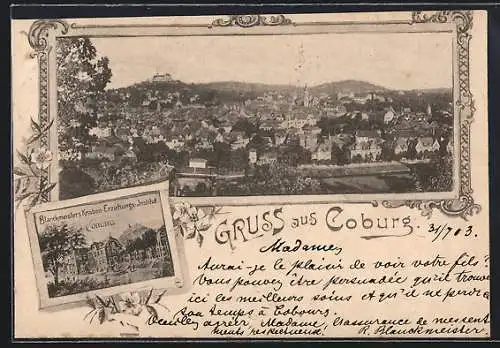 Blanckmeisters Knaben-Erziehungs-Institut
COBURG
GRUSS aus Coburg. 31/7 03.
Madame,
Aurai-je le plaisir de voir votre fils?
Vous pouvez être persuadée qu'il trouvera
ici les meilleurs soins et qu'il ne perdra
son temps à Cobourg.
Veuillez agréer, Madame, l'assurance de mes senti-
ments respectueux. R. Blanckmeister.